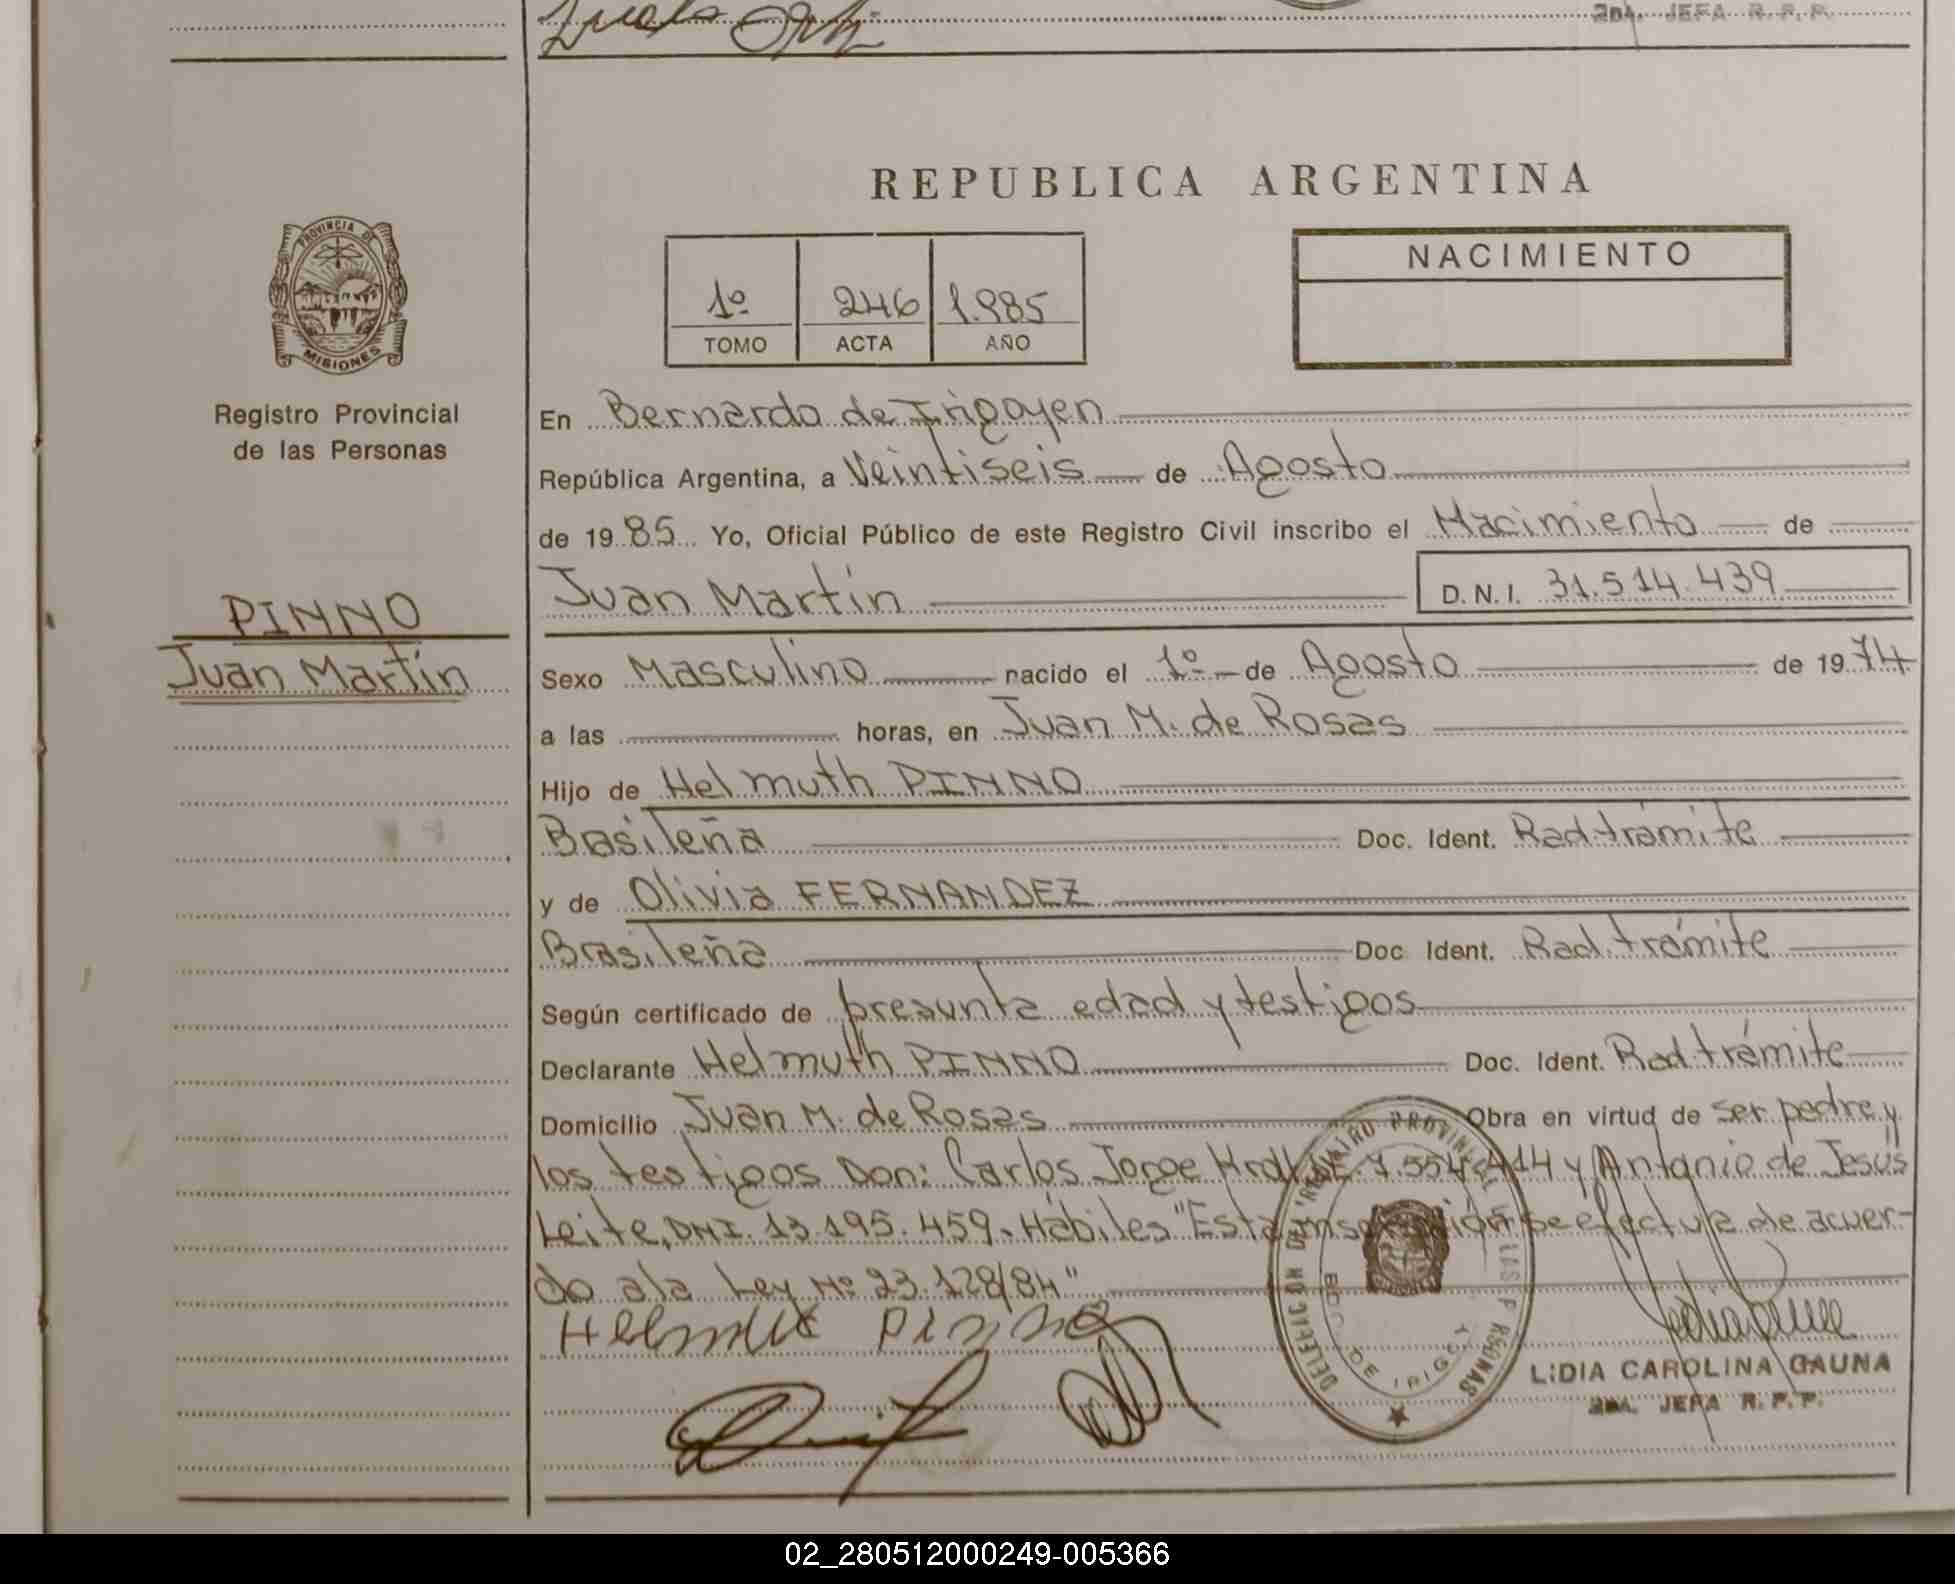 2da. JEFA R. P. P.
REPUBLICA ARGENTINA
PROVINCIA DE
MISIONES
Registro Provincial
de las Personas
1º 246 1.985
TOMO ACTA AÑO
NACIMIENTO
En Bernardo de Irigoyen
República Argentina, a Veintiseis de Agosto
de 1985 Yo, Oficial Público de este Registro Civil inscribo el Nacimiento de
Juan Martín D. N. I. 31.514.439
PINNO
Juan Martín
Sexo Masculino nacido el 1º de Agosto de 1974
a las horas, en Juan M. de Rosas
Hijo de Helmuth PINNO
Brasileña Doc. Ident. Rad. trámite
y de Olivia FERNANDEZ
Brasileña Doc Ident. Rad. trámite
Según certificado de presunta edad y testigos
Declarante Helmuth PINNO Doc. Ident. Rad. trámite
Domicilio Juan M. de Rosas Obra en virtud de ser padre y
los testigos Don: Carlos Jorge 7.554.414 y Antonio de Jesús
Leite, DNI. 13.195.459. Hábiles "Esta inscripción se efectúa de acuer-
do a la Ley Nº 23.128/84"
Helmut Pinno
DELEGACION DE REGISTRO PROVINCIAL DE LAS PERSONAS
BDO. DE IRIGOYEN
LIDIA CAROLINA GAUNA
2da. JEFA R. P. P.
02_280512000249-005366